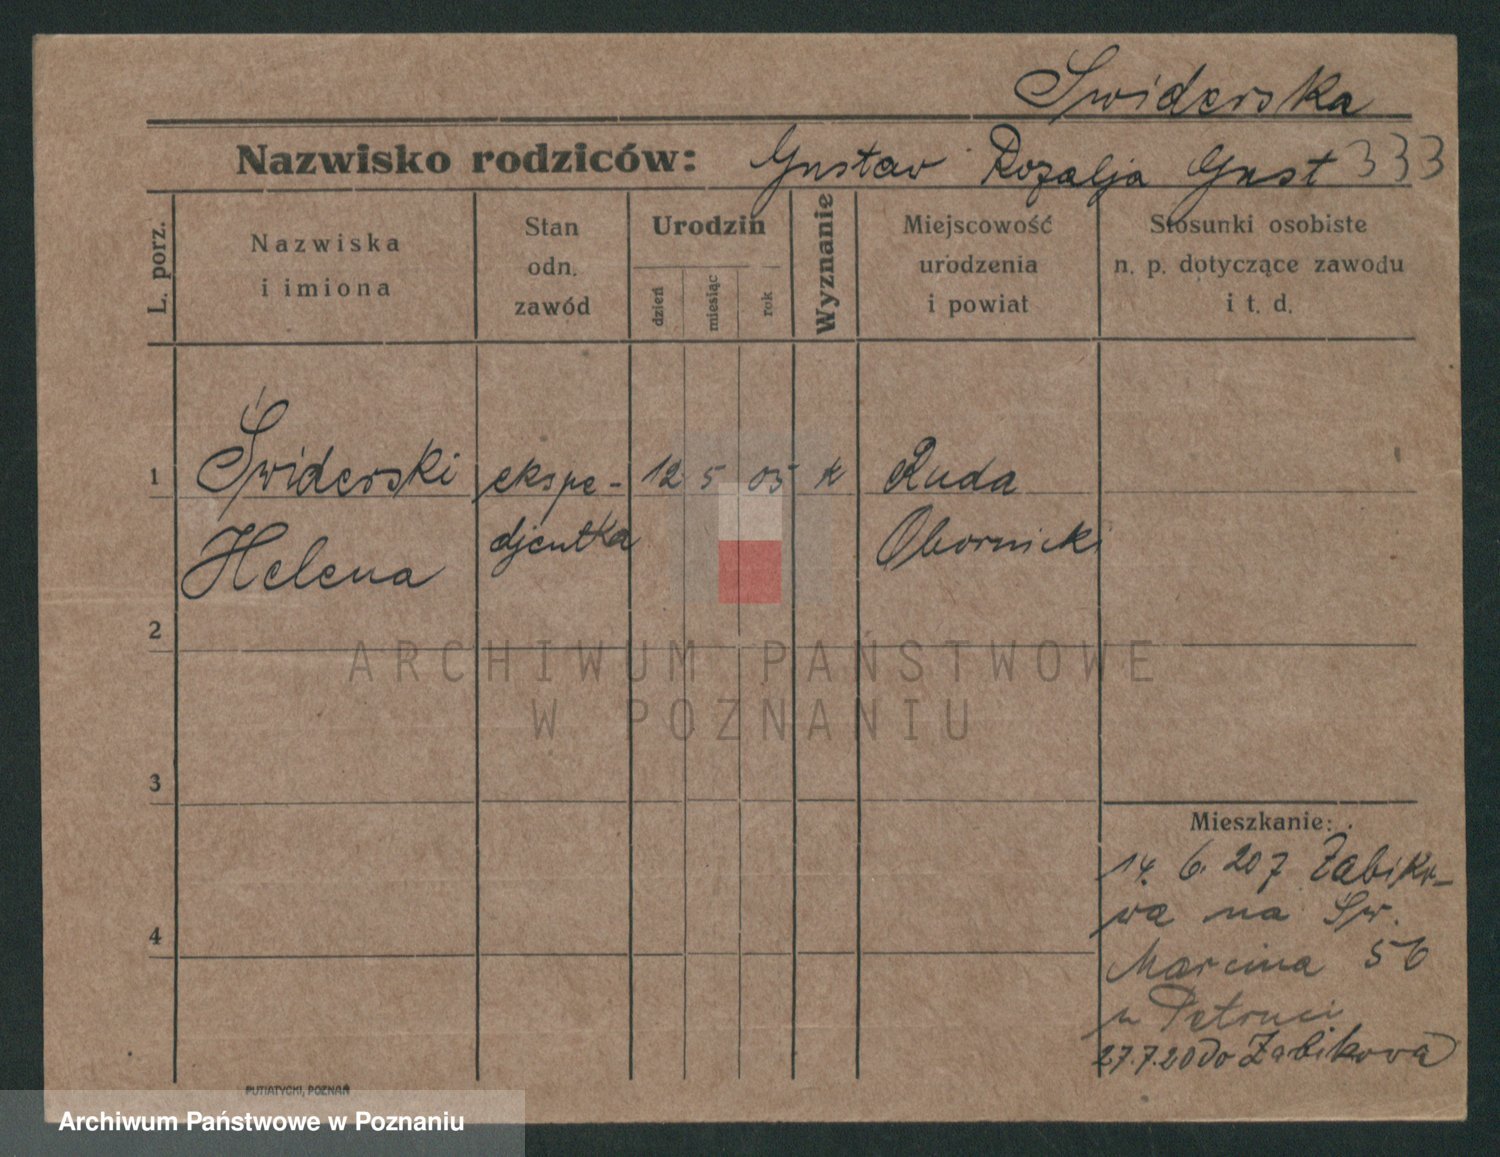 Swiderska
Nazwisko rodziców: Gustav Rozalja Gust 333
L. porz.
Nazwiska i imiona
Stan odn. zawód
Urodzin
dzień
miesiąc
rok
Wyznanie
Miejscowość urodzenia i powiat
Stosunki osobiste n. p. dotyczące zawodu i t. d.
1 Świderski ekspe- 12 5 05 k Ruda
Helena djentka Obornicki
2
3
4
Mieszkanie:
14. 6. 20 z Żabiko-
wa na Św.
Marcina 56
u Petruci
27.7.20 do Żabikowa
PUTIATYCKI, POZNAŃ
ARCHIWUM PAŃSTWOWE
W POZNANIU
Archiwum Państwowe w Poznaniu